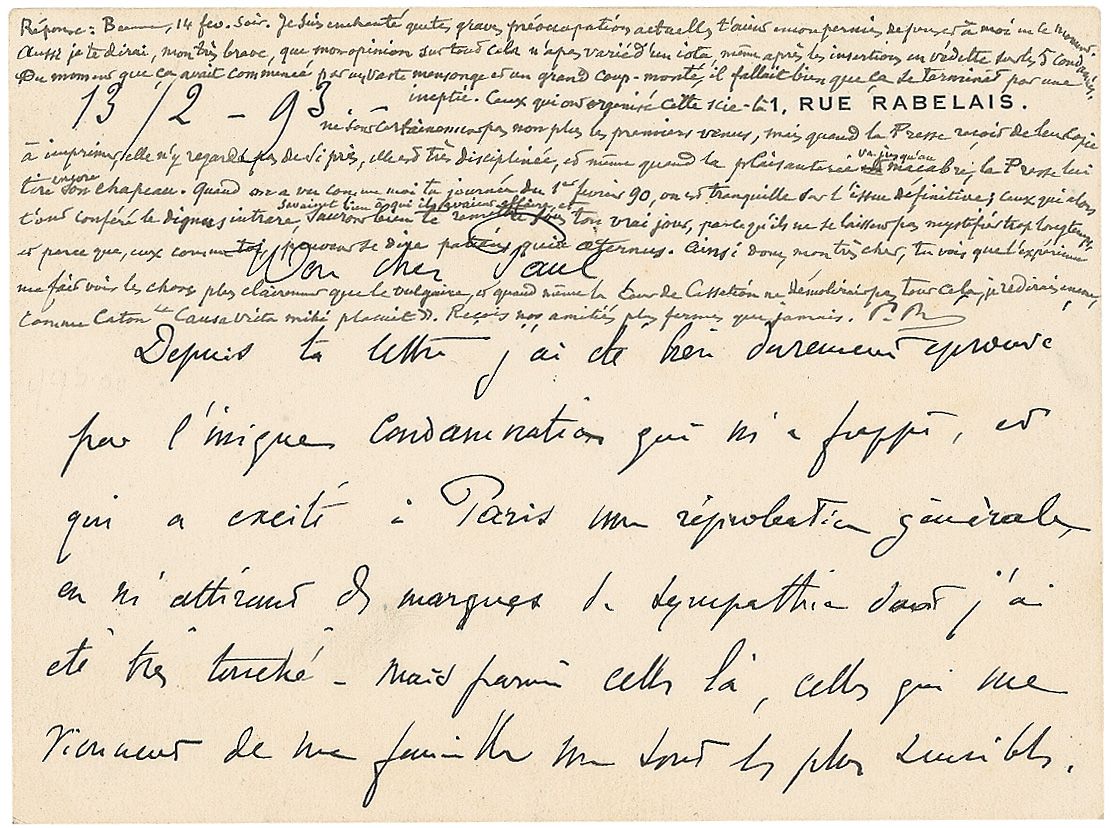 Réponse: Beaune, 14 fev. soir. Je suis enchanté que tes graves préoccupations actuelles t'aient permis de penser à moi en ce moment.
Aussi je te dirai, mon très brave, que mon opinion sur tout cela n'a pas varié d'un iota, même après les insertions en vedette sur les 5 condamnés.
Du moment que ça avait commencé par un vaste mensonge et un grand coup-monté, il fallait bien que ça se terminât par une
ineptie. Ceux qui ont organisé cette scie-là
1, RUE RABELAIS.
13/2 - 93. -
ne sont certainement pas non plus les premiers venus, mais quand la Presse reçoit de la copie
à imprimer, elle n'y regarde pas de si près, elle est très disciplinée, et même quand la plaisanterie va jusqu'au macabre, la Presse lui
tire encore son chapeau. Quand on a vu comme moi la journée du 1er fevrier 90, on est tranquille sur l'issue définitive; ceux qui alors
t'ont conféré le dignus intrare, savaient bien ce qu'ils avaient à faire, et sauront bien le remettre sous ton vrai jour, parce qu'ils ne se laissent pas mystifier trop longtemps,
et parce que, eux comme toi, peuvent se dire patiens quia æternus. Ainsi donc, mon très cher, tu vois que l'expérience
me fait voir les choses plus clairement que le vulgaire, et quand même la Cour de Cassation ne démolirait pas tout cela, je redirais encore,
comme Caton "Causa victa mihi placuit". Reçois nos amitiés plus fermes que jamais.
Mon cher Paul
Depuis ta lettre j'ai été bien durement éprouvé
par l'inique condamnation qui m'a frappé, et
qui a excité à Paris une réprobation générale,
en m'attirant des marques de sympathie dont j'ai
été très touché - mais parmi celles là, celles qui me
viennent de ma famille me sont les plus sensibles.